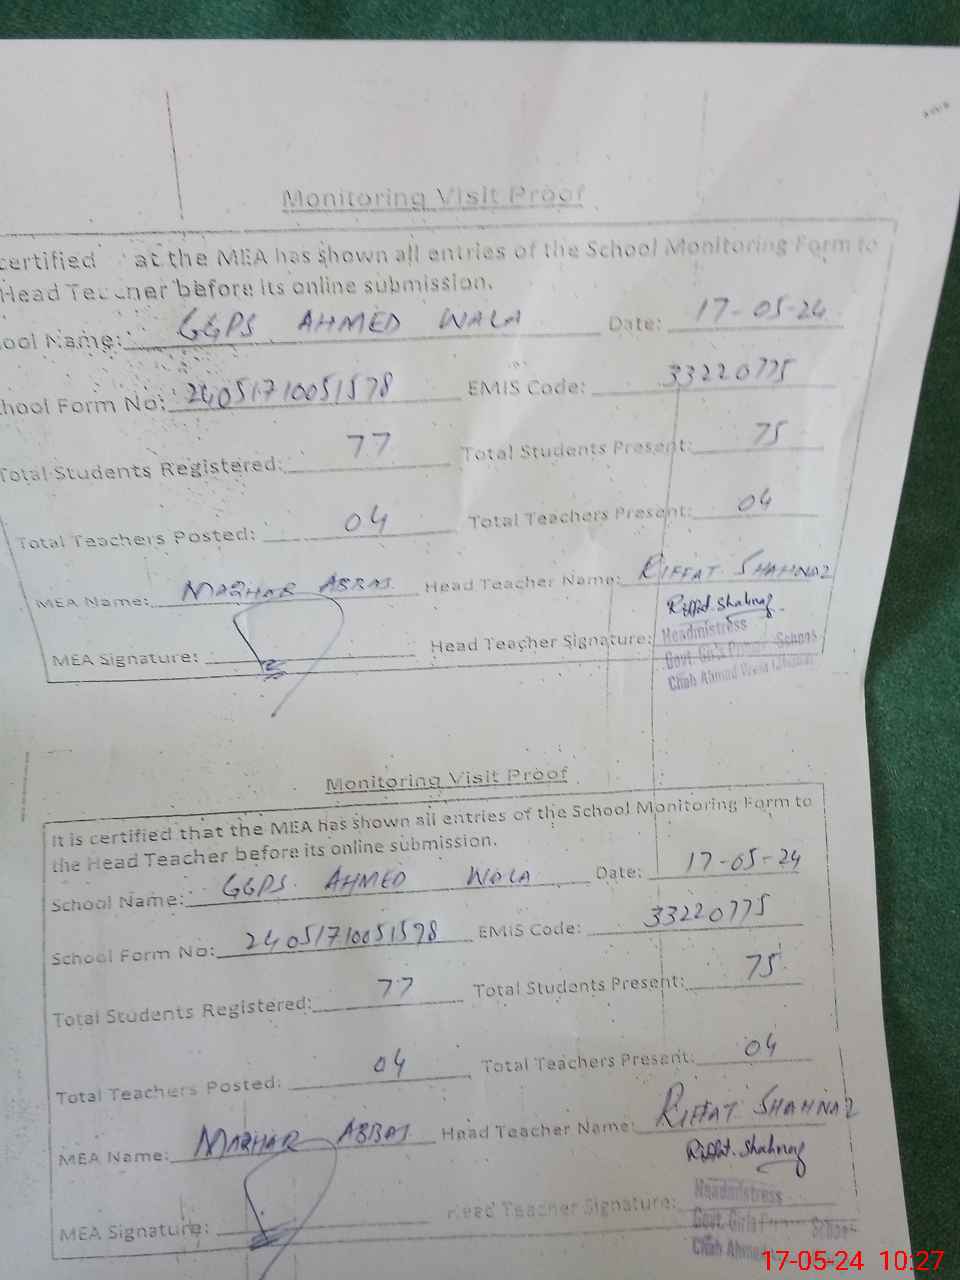 Monitoring Visit Proof
certified at the MEA has shown all entries of the School Monitoring Form to
Head Teacher before its online submission.
ool Name: GGPS AHMED WALA Date: 17-05-24
hool Form No: 24051710051578 EMIS Code: 33220775
Total Students Registered: 77 Total Students Present: 75
Total Teachers Posted: 04 Total Teachers Present: 04
MEA Name: MAZHAR ABBAS Head Teacher Name: RIFFAT SHAHNAZ
Riffat Shahnaz
MEA Signature: Head Teacher Signature: Headmistress
Govt. Girls Primary School
Chah Ahmad Wala
Monitoring Visit Proof
It is certified that the MEA has shown all entries of the School Monitoring Form to
the Head Teacher before its online submission.
School Name: GGPS AHMED WALA Date: 17-05-24
School Form No: 24051710051598 EMIS Code: 33220775
Total Students Registered: 77 Total Students Present: 75
Total Teachers Posted: 04 Total Teachers Present: 04
MEA Name: MAZHAR ABBAS Head Teacher Name: RIFFAT SHAHNAZ
Riffat Shahnaz
MEA Signature: Head Teacher Signature: Headmistress
Govt. Girls Primary School
Chah Ahmad
17-05-24 10:27